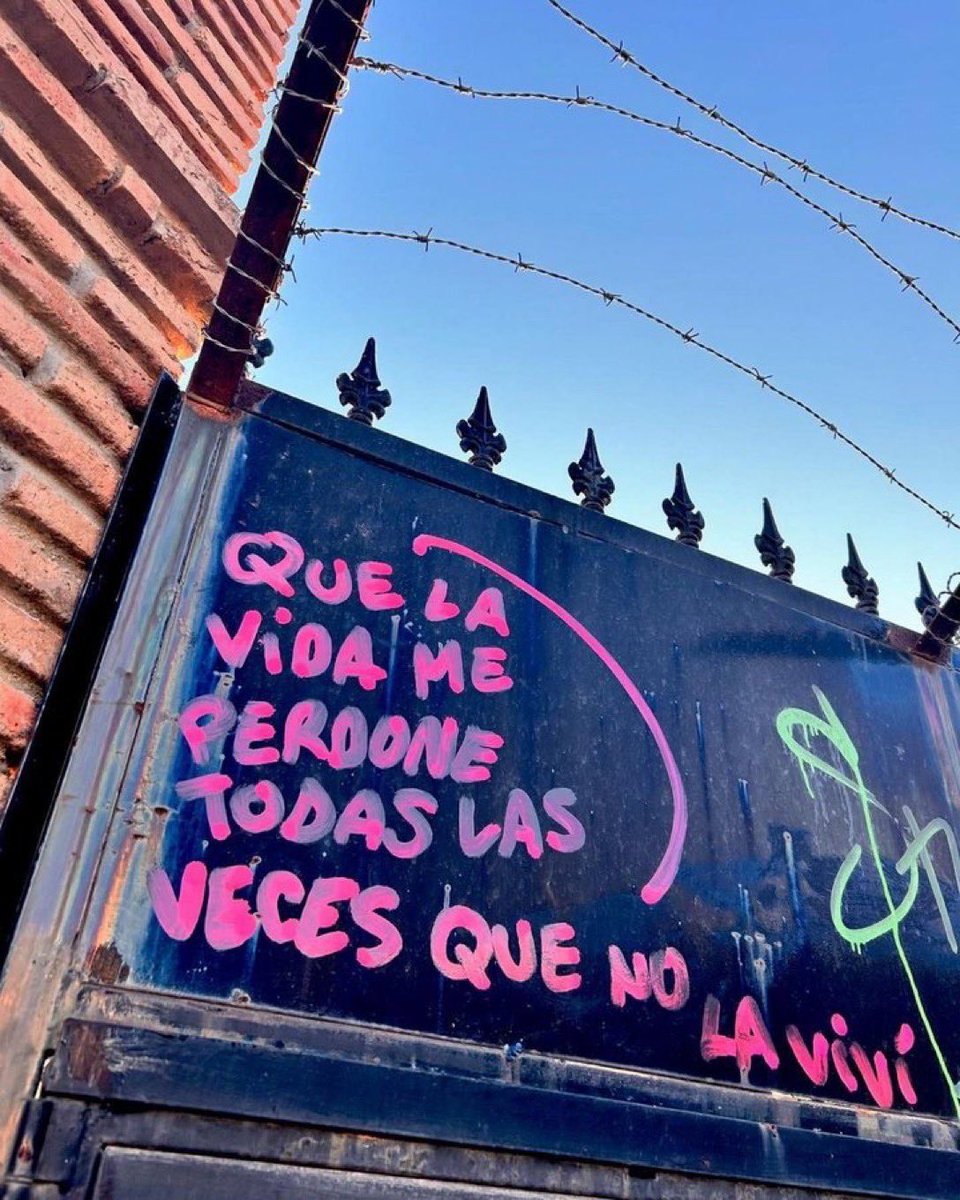 QUE LA
ViDA ME
PERDONE
TODAS LAS
VECES QUE NO
LA ViVí